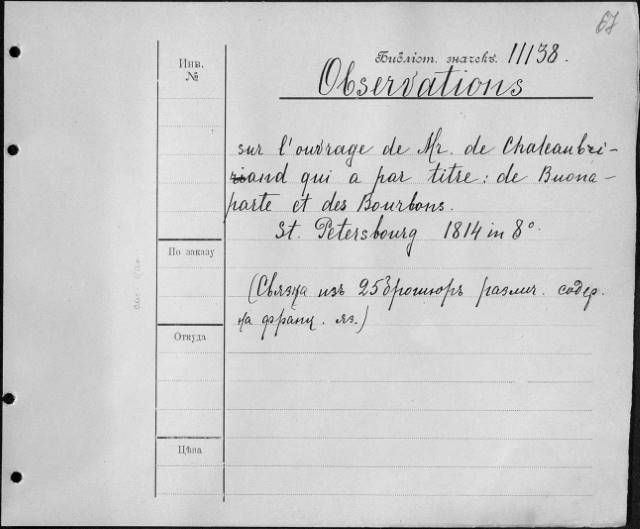 67
Инв.
№
Библіот. значекъ. 11138.
Observations
sur l'ouvrage de Mr. de Chateaubri-
and qui a par titre: de Buona-
parte et des Bourbons.
St. Petersbourg 1814 in 8°
По заказу
(Связка изъ 25 брошюръ различ. содер.
на франц. яз.)
Откуда
Цѣна